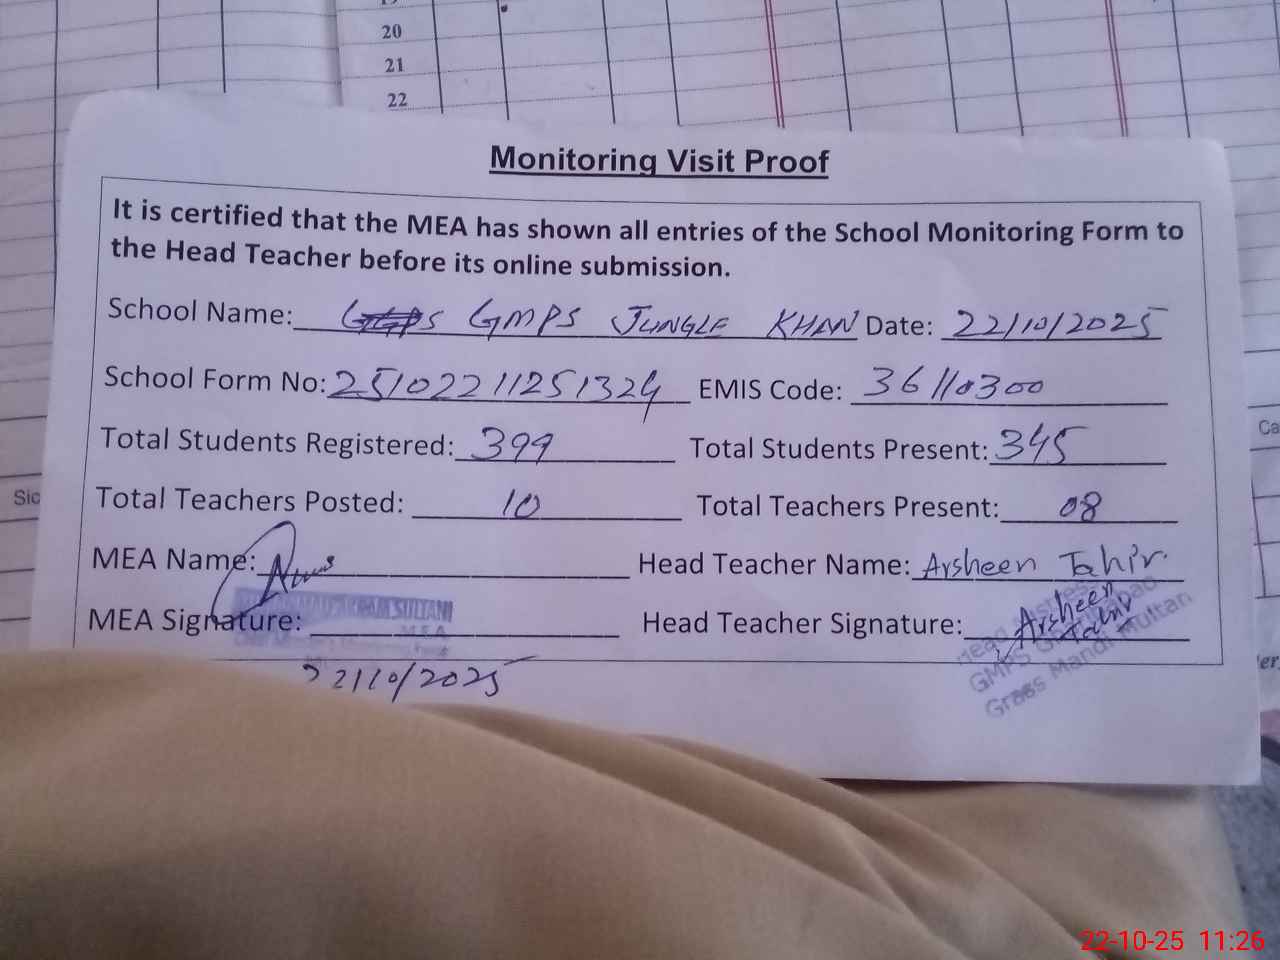 19
20
21
22
Monitoring Visit Proof
It is certified that the MEA has shown all entries of the School Monitoring Form to
the Head Teacher before its online submission.
School Name: GMPS JUNGLE KHAN Date: 22/10/2025
School Form No: 25102211251324 EMIS Code: 36110300
Total Students Registered: 399 Total Students Present: 345
Total Teachers Posted: 10 Total Teachers Present: 08
MEA Name: Head Teacher Name: Arsheen Tahir
MEA Signature: Head Teacher Signature: Arsheen Tahir
SULTANI
MEA
22/10/2025
Head Mistress
GMPS
Grass Mandi Multan
Sic
Ca
er
22-10-25 11:26